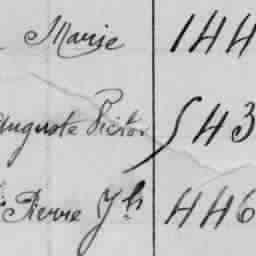 Marie 144
Auguste Victor 543
Pierre Jh 446